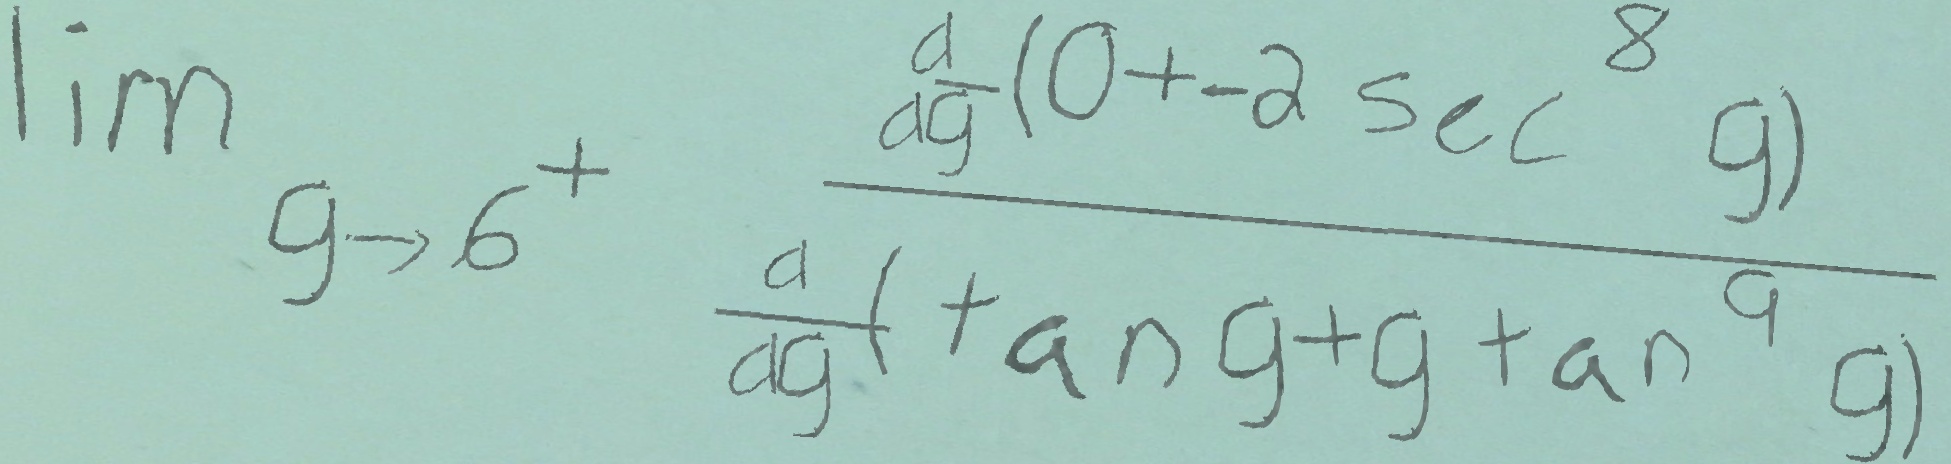 \lim_{g \to 6^+} \frac{\frac{d}{dg}(0+-2 \sec^8 g)}{\frac{d}{dg}(\tan g+g \tan^9 g)}